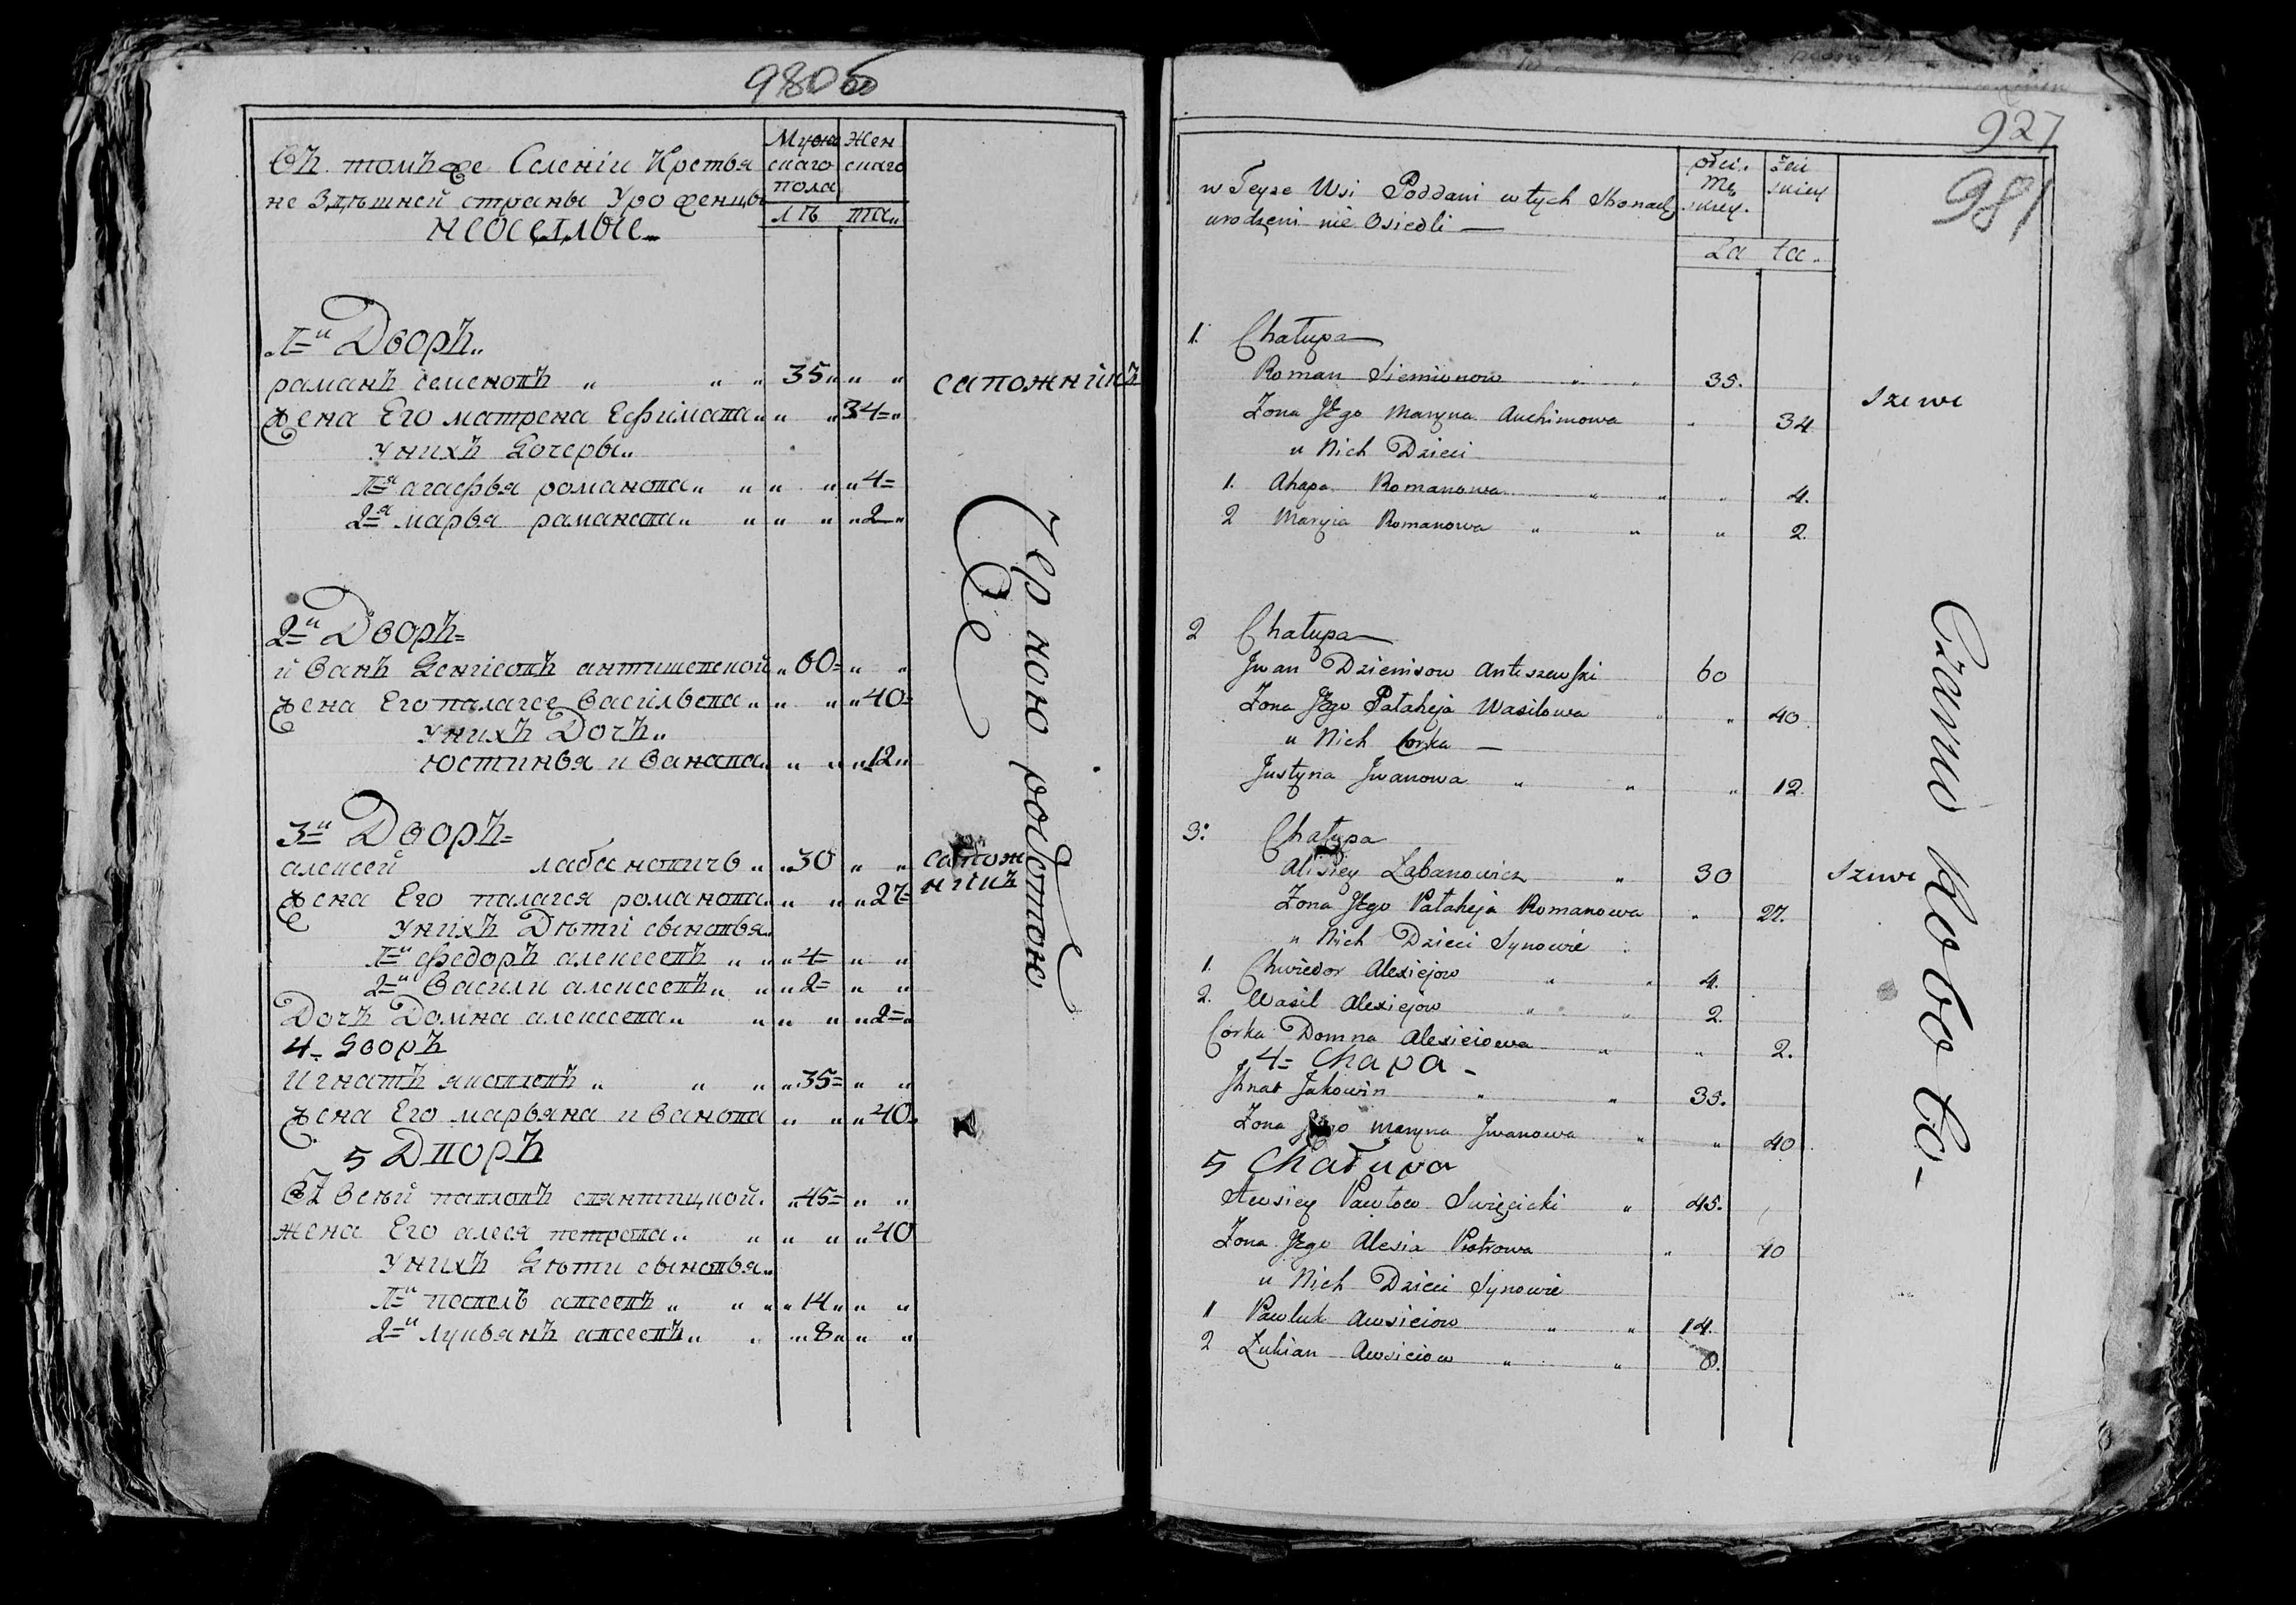 980об
Въ томъ же Селеніи Крестья
не Здѣшней страны Уроженцы
неоселлые
Мужа Жен
скаго скаго
пола
лѣ та
1й Дворъ
раманъ семеновъ 35 сапожникъ
жена Его матрена Ефимава 34
унихъ дочеры
1я агафья романова 4
2я марья раманова 2
2й Дворъ
иванъ денисовъ антишевской 60
жена Его палагея василвева 40
унихъ Дочъ
юстинья иванава 12
3й Дворъ
алексей лабановичь 30 сапож
никъ
жена Его палагея романова 27
унихъ Дѣти сыновья
1й федоръ алексеевъ 4
2й васили алексеевъ 2
Дочъ Домна алексеева 2
4 дворъ
игнатъ яковлевъ 35
жена Его марьяна иванова 40
5 Дворъ
Евсѣй павловъ свянтицкой 45
жена Его алеся петрова 40
унихъ дѣти сыновья
1й павелъ авсеевъ 14
2й лукьянъ авсеевъ 8
Черною работою
927
981
w Teyze Wsi Poddani w tych Stronach
urodzeni nie Osiedli
płci
Mę
skiey
żeń
skiey
La ta
1. Chałupa
Roman Siemionow 35. Szewc
Zona Jego Maryna Auchimowa 34
u Nich Dzieci
1. Ahapa Romanowa 4.
2 Maryia Romanowa 2.
2 Chałupa
Jwan Dzienisow Antiszewski 60
Zona Jego Pałaheja Wasilowa 40
u Nich Corka
Justyna Jwanowa 12
3. Chałupa
Alisiey Łabanowicz 30 Szewc
Zona Jego Pałaheja Romanowa 27.
u Nich Dzieci Synowie
1. Chwiedor Alexiejow 4.
2. Wasil Alexiejow 2.
Corka Domna Alexieiowa 2.
4 Chapa
Jhnat Jakowin 35.
Zona Jego Maryna Jwanowa 40
5 Chałupa
Awsiey Pawłow Swięcicki 45.
Zona Jego Alesia Piotrowa 40
u Nich Dzieci Synowie
1 Pawluk Awsieiow 14.
2 Łukian Awsieiow 8.
Czarno Robota